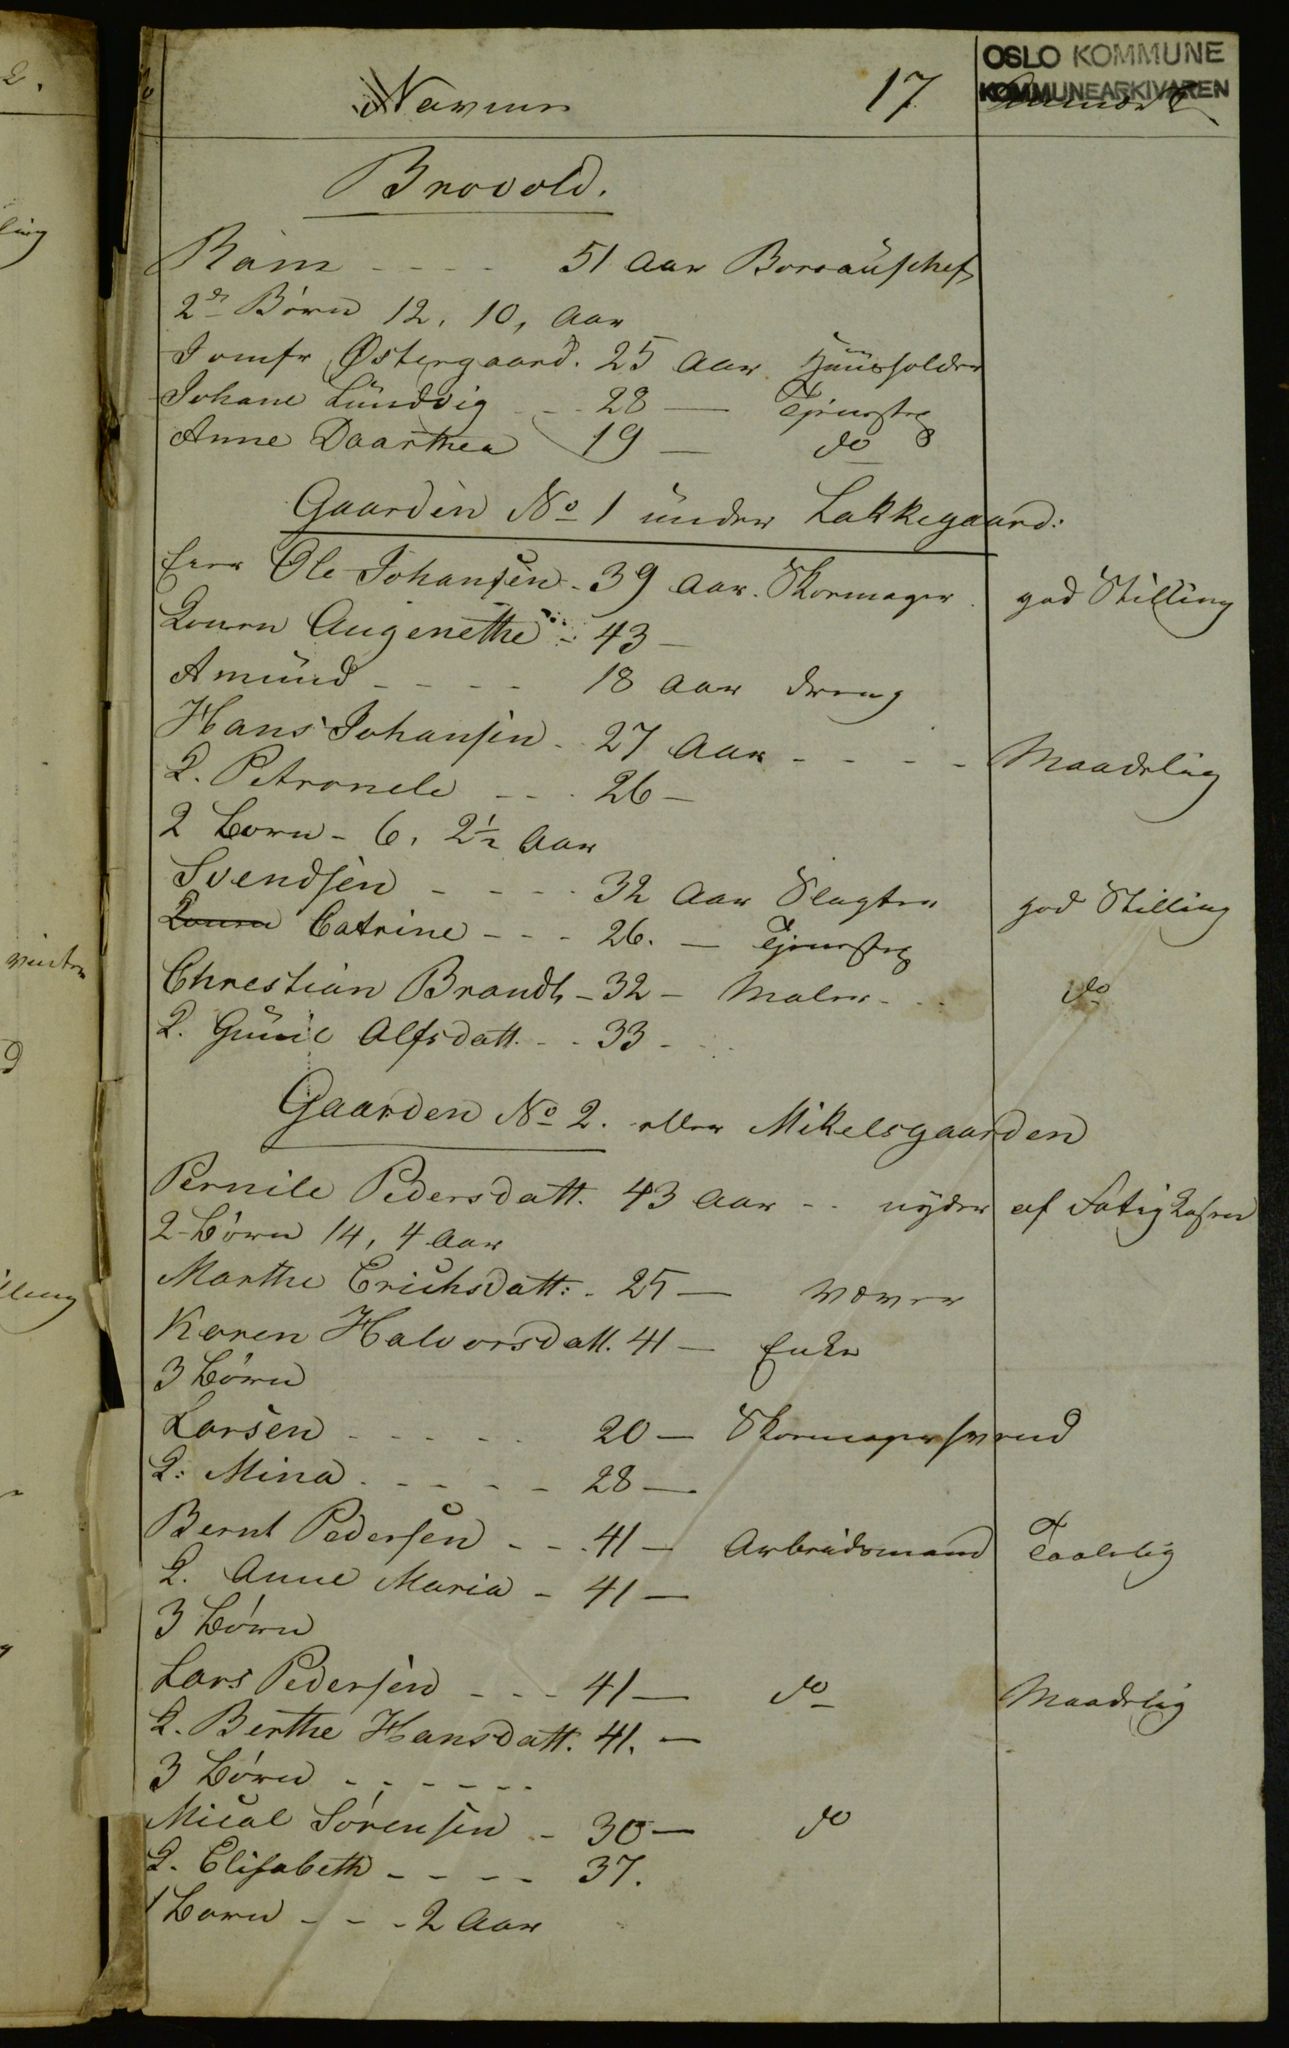 OSLO KOMMUNE
KOMMUNEARKIVAREN
Navnene 17 Anmærk
Brovold.
Ram - - - - 51 Aar Bureauschef
2de Børn 12, 10, Aar
Jomfr Østergaard. 25 Aar Huusholder
Johane Lundvig - - 28 — Tjeneste
Anne Daarthea 19 — do
Gaarden No 1 under Lakkegaard:
Eier Ole Johansen - 39 Aar. Skomager god Stilling
Konen Augenethe - 43 —
Amund - - - - 18 Aar dreng
Hans Johansen - 27 Aar - - - - Maadelig
K. Petronele - - - 26 —
2 Børn - 6, 2½ Aar
Svendsen - - - - 32 Aar Slagter god Stilling
Konen Catrine - - - 26. — Tjeneste
Chrestian Brandt - 32 — Maler - - do
K. Gunil Alfsdatt. - - 33 - -
Gaarden No 2. eller Mikelsgaarden
Pernile Pedersdatt. 43 Aar - - nyder af Fatigkassen
2 Børn 14, 4 Aar
Marthe Erichsdatt: - 25 — væver
Karen Halvorsdatt. 41 — Enke
3 Børn
Larsen - - - - - 20 — Skomagersvend
K: Mina - - - - - 28 —
Bernt Pedersen - - - 41 — Arbeidsmand Taalelig
K. Anne Maria - 41 —
3 Børn
Lars Pedersen - - - 41 — do Maadelig
K. Berthe Hansdatt. 41. —
3 Børn - - - - - -
Mical Sørensen - 30 — do
K. Elisabeth - - - - 37.
1 Barn - - - 2 Aar